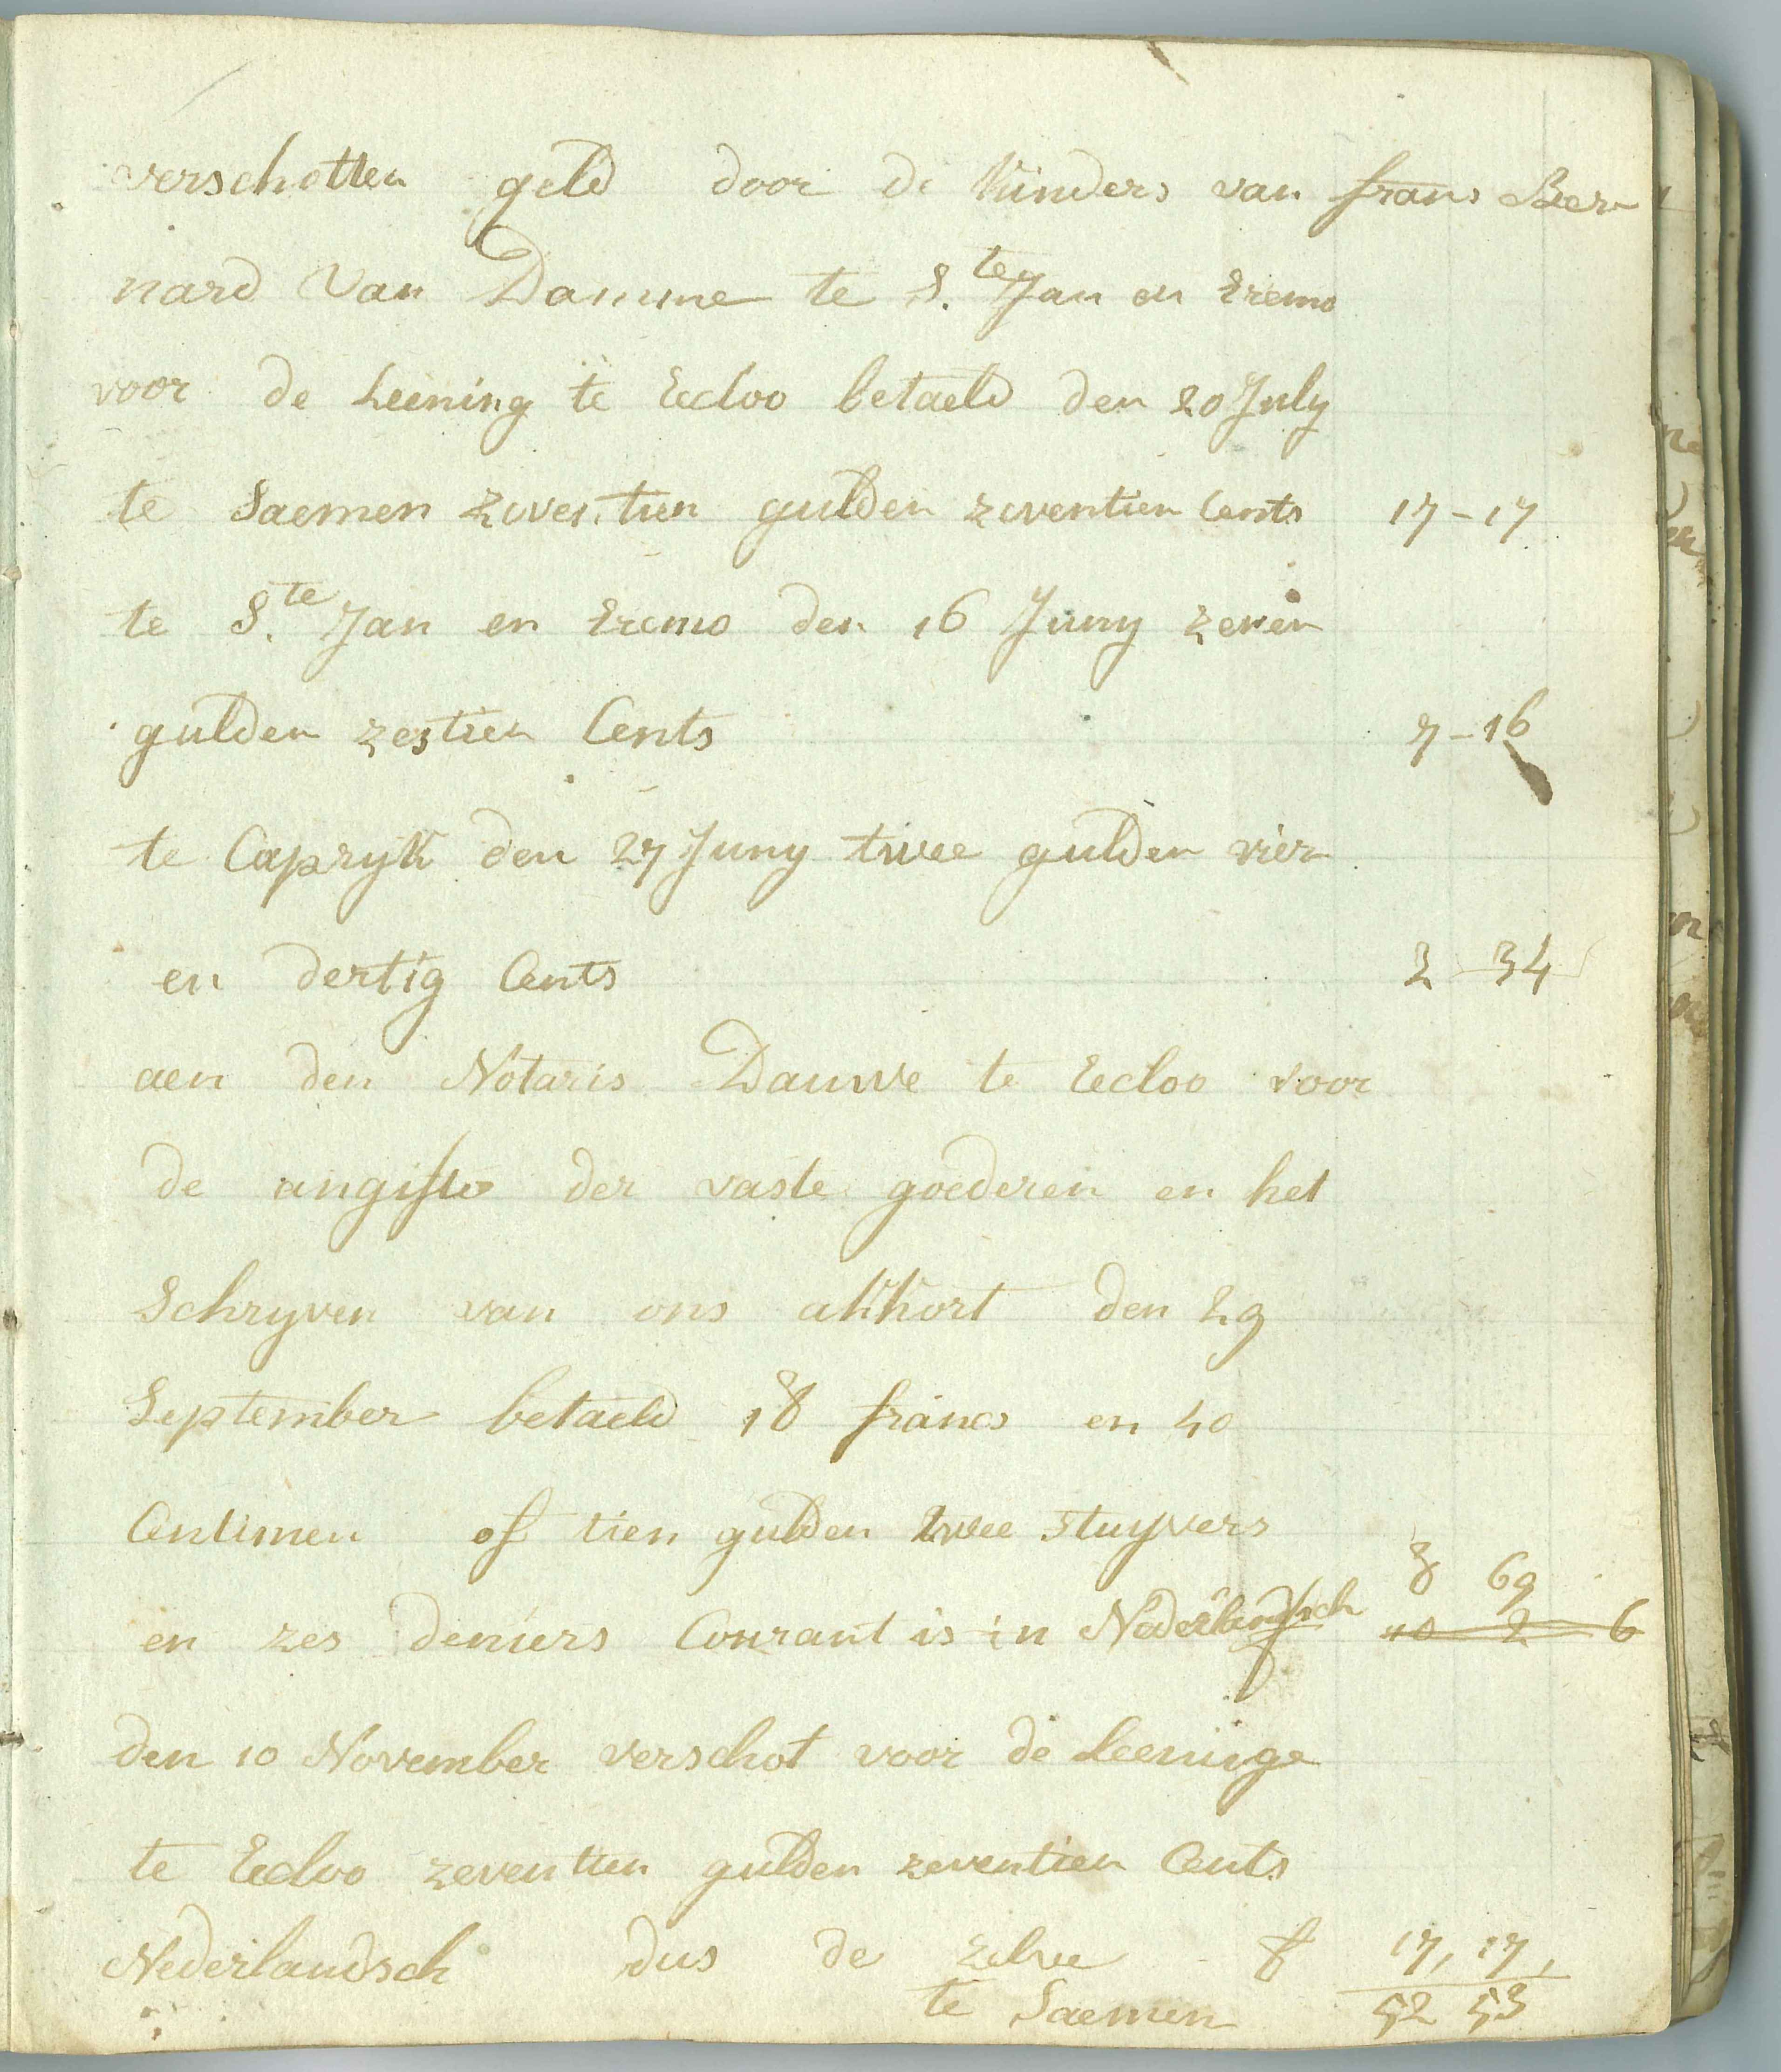 verschotten geld door de kinders van frans Ber-
nard Van Damme te S.te Jan en Eremo
voor de Leening te Eecloo betaeld den 20 July
te Saemen zeventien gulden zeventien Cents 17-17
te S.te Jan en Eremo den 16 Juny zeven
gulden zestien Cents 7-16
te Capryk den 27 Juny twee gulden vier
en dertig Cents 2 34
aen den Notaris Dauwe te Eecloo voor
de angifte der vaste goederen en het
Schryven van ons akkort den 29
September betaeld 18 francs en 40
Centimen of tien gulden twee stuyvers
8 69
en zes deniers Courant is in Nederlandsch 10 2 6
den 10 November verschot voor de Leeninge
te Eecloo zeventien gulden zeventien Cents
Nederlandsch dus de zelve f 17, 17,
te Saemen 52 53